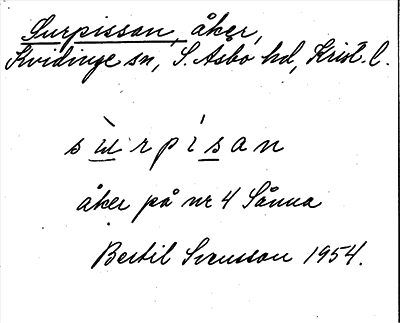 Surpissan, åker,
Kvidinge sn, S. Åsbo hd, Krist. l.
sù̲rpís̲an
åker på nr 4 Sånna
Bertil Svensson 1954.